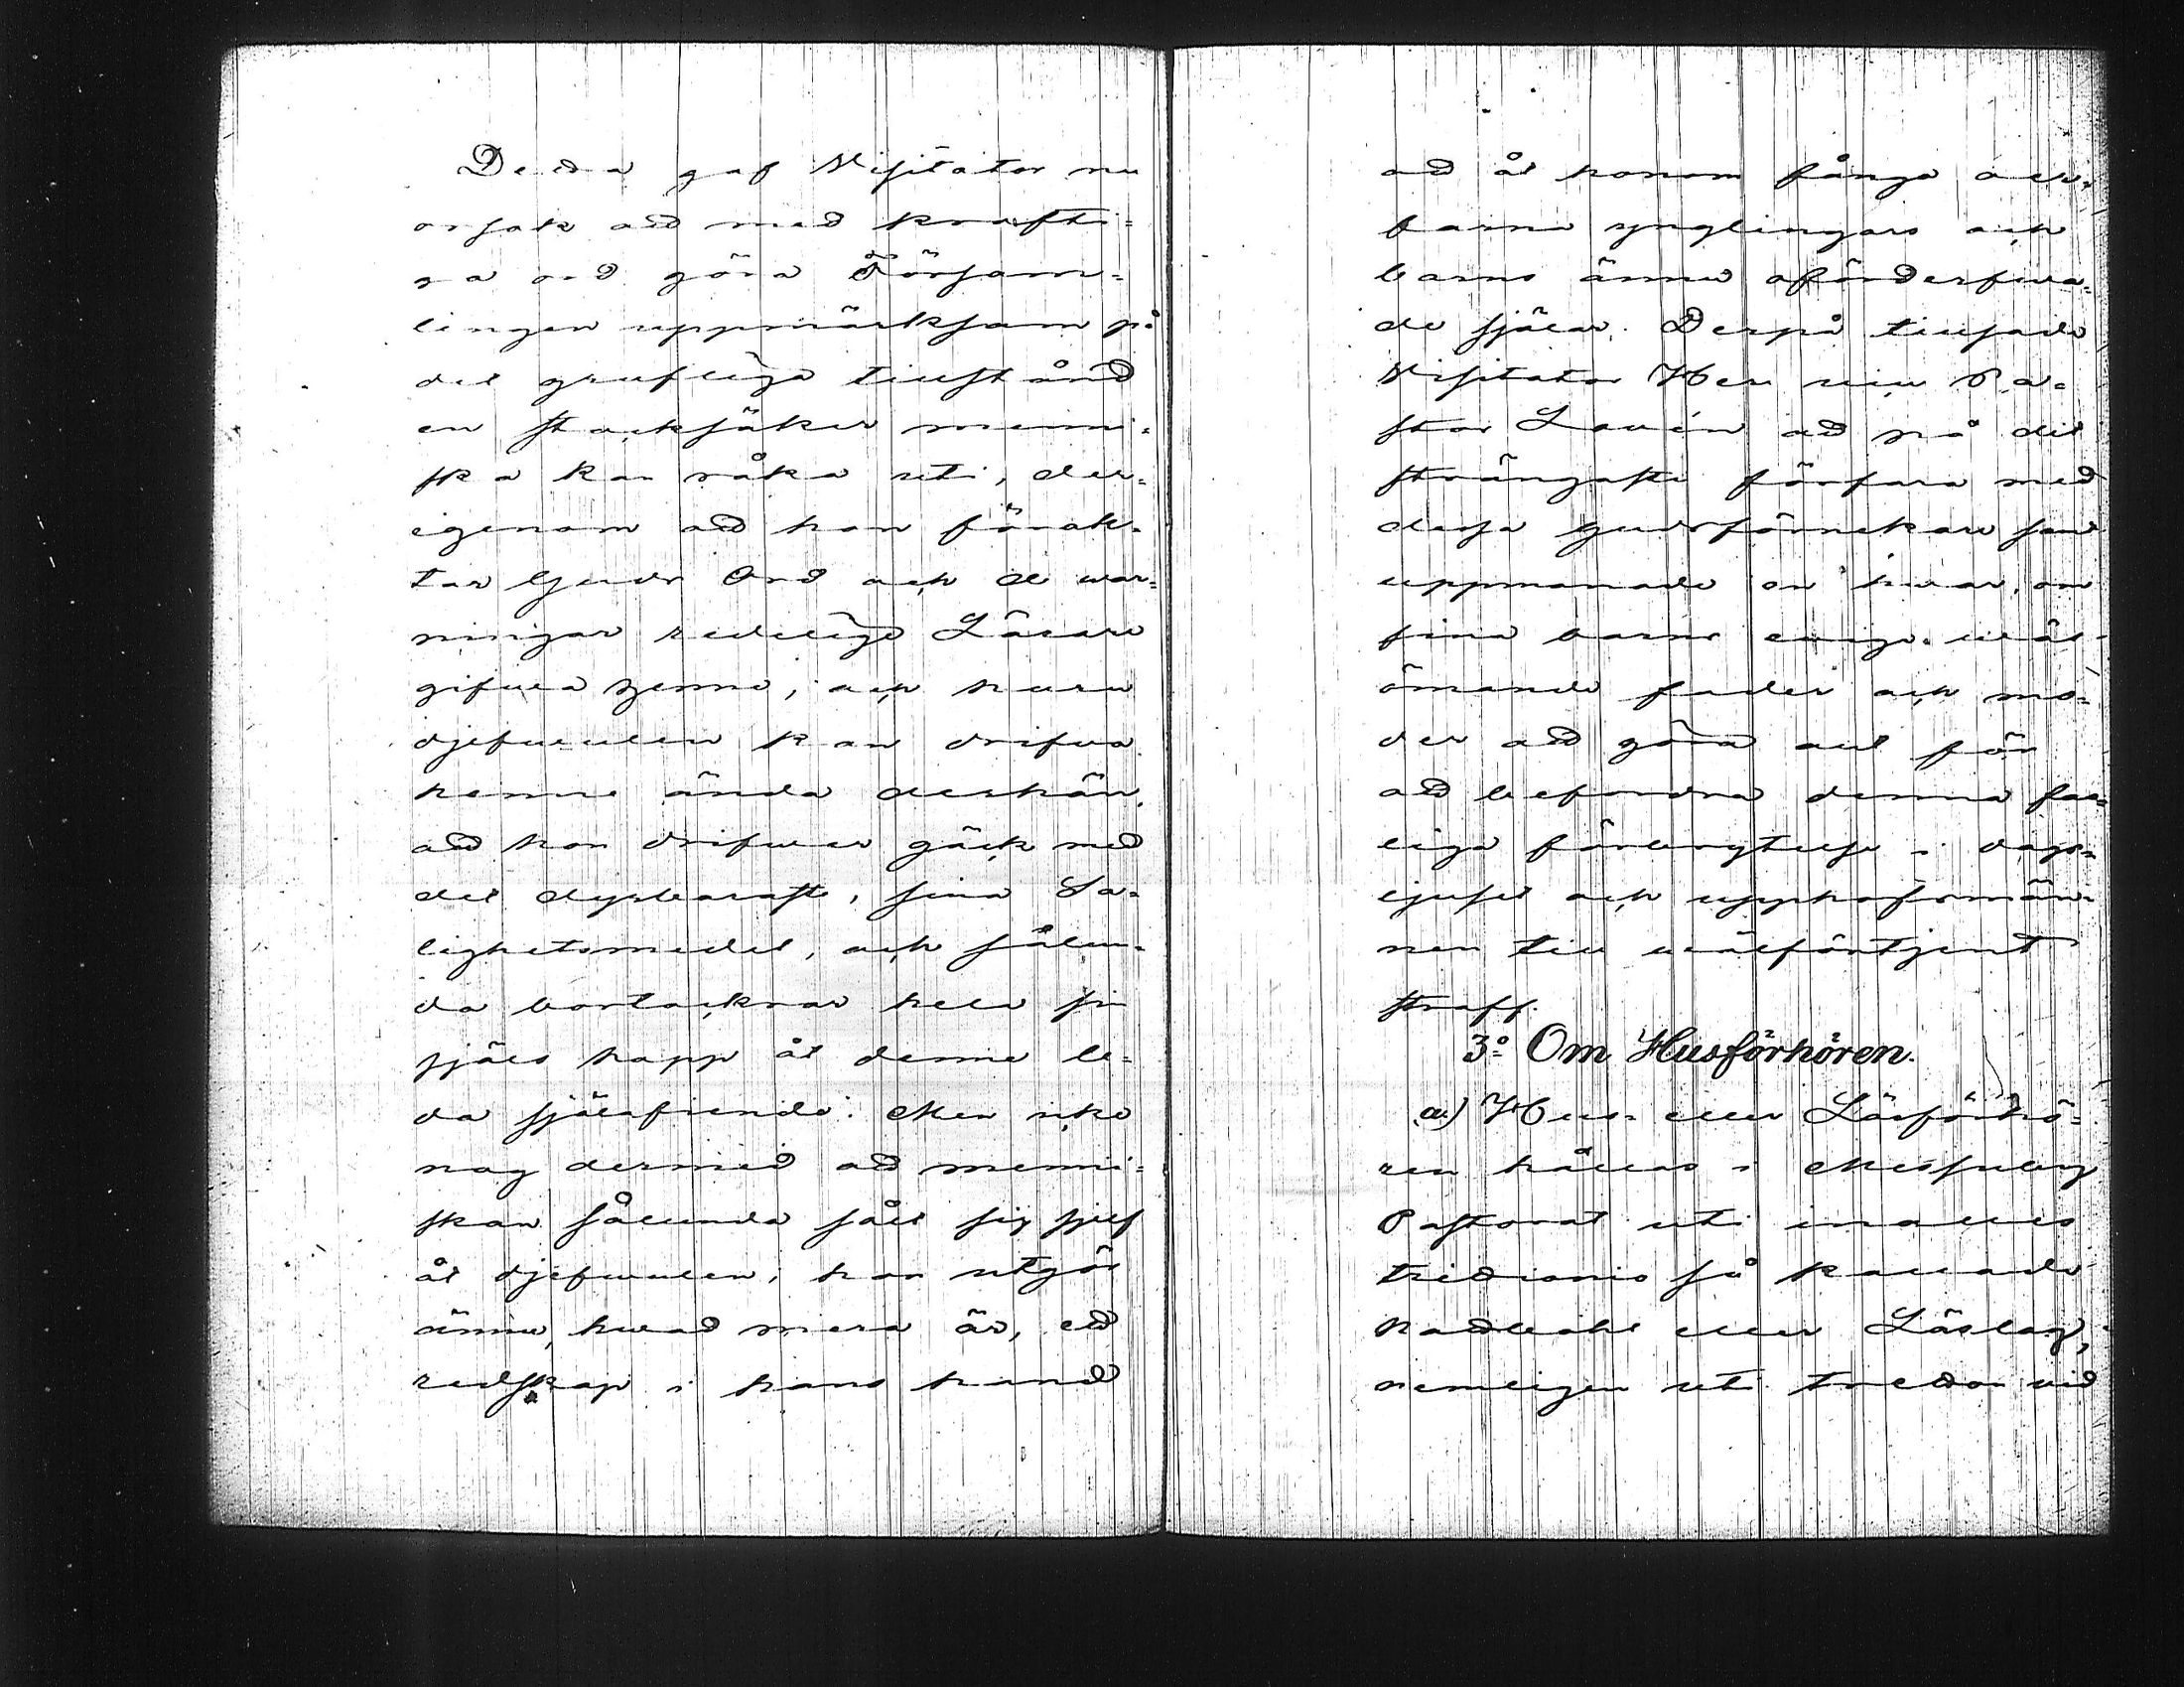 Detta gaf Visitator nu
orsak att med krafti=
ga ord göra Försam=
lingen uppmärksam på
det grufliga tillstånd
en stackssäker menni=
ska kan råka uti, der=
igenom att hon förak=
tar Guds Ord och de war=
ningar redelige Lärare
gifwa henne, och huru
djefwulen kan drifwa
henne ända derhän,
att hon drifwer gäck med
det dyrbaraste, sina Sa=
lighetsmedel, och sålun=
da bortackrar hela sin
själs hopp åt denne le=
da själafiende. Men icke
nog dermed att menni=
skan sålunda sålt sig sjelf
åt djefwulen; hon utgör
ännu, hwad mera är, ett
redskap i hans hand
att åt honom fånga
barns ynglingars och
barns ännu oförderfwa=
de själar. Derpå tillsade
Visitator Herr Pa=
stor Lovén att på det
strängaste förfara med
dessa gudsförnekare samt
uppmanade en hwar, om
sina barns ewiga wäl
ömmande fader och mo=
der att göra allt för
att befordra denna fas=
liga förbrytelse i dags=
ljuset och upphofsmän=
nen till wälförtjent
straff.
3:o Om Husförhören.
a) Hus- eller Läsförhö=
ren hållas i
Pastorat uti inalles
trettionio så kallade
Kottlaht eller Läslag,
nemligen uti tretton wid